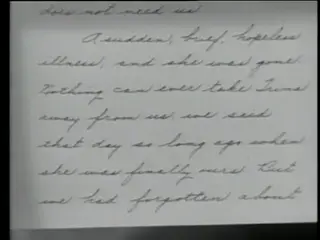 does not need us
A sudden, brief, hopeless
illness, and she was gone.
Nothing can ever take Trina
away from us we said
that day so long ago when
she was finally ours. But
we had forgotten about